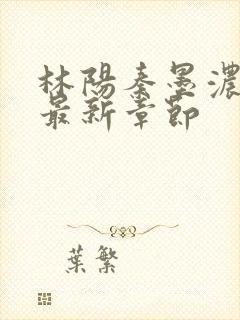 林陽秦墨濃
最新章節
葉繁